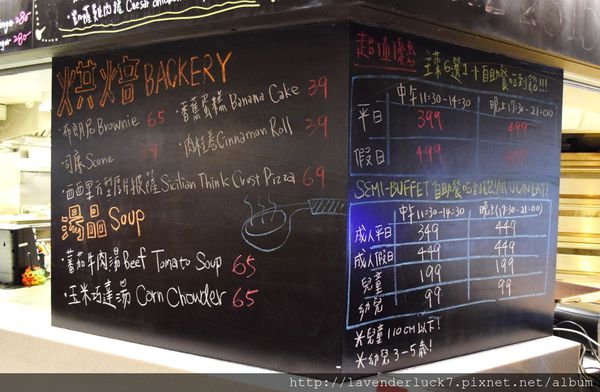 Caesar
烘焙 BACKERY
布朗尼 Brownie 65
·香蕉蛋糕 Banana Cake 39
司康 Scone 39
·肉桂卷 Cinnaman Roll 39
·西西里方型厚片披薩 Sicilian Think Crust Pizza 69
湯品 Soup
·蕃茄牛肉湯 Beef Tomato Soup 65
·玉米巧達湯 Corn Chowder 65
超值優惠
主菜6選1+自助餐吃到飽!!!
中午11:30-14:30 晚上(17:30-21:00)
平日 399 499
假日 499
SEMI-BUFFET 自助餐吃到飽 ALL U CAN EAT!
中午11:30-14:30 晚上(17:30-21:00)
成人平日 349 449
成人假日 449 449
兒童 199 199
幼兒 99 99
※兒童110cm以下!
※幼兒3-5歲!
http://lavenderluck7.pixnet.net/album